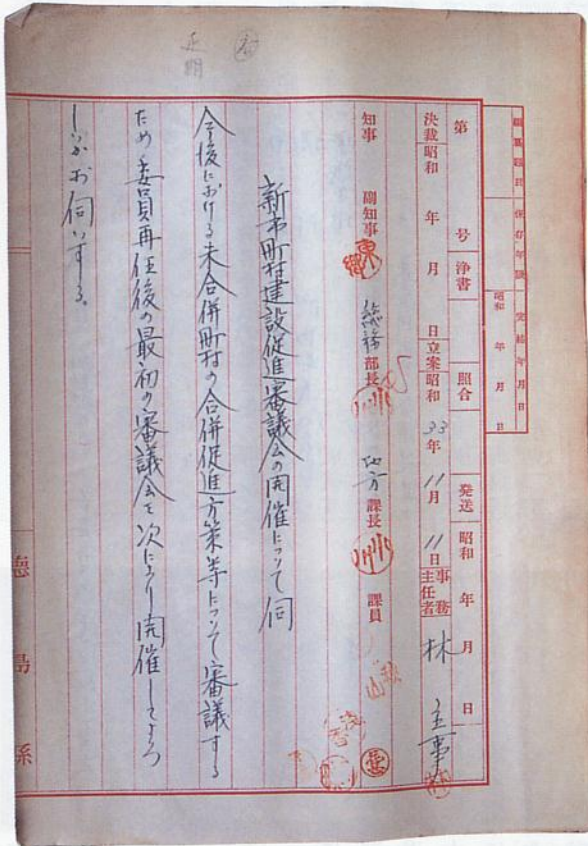 保存年限
完結年月日
昭和 年 月 日
第 号 浄書 照合 発送 昭和 年 月 日
決裁 昭和 年 月 日 立案 昭和 33年 11月 11日 事務主任者 林 主事
知事 副知事 東郷 総務部長 地方課長 課員
新市町村建設促進審議会の開催について伺
今後における未合併町村の合併促進方策等について審議する
ため委員再任後の最初の審議会を次により開催してよろ
しいかお伺いする。
徳島県